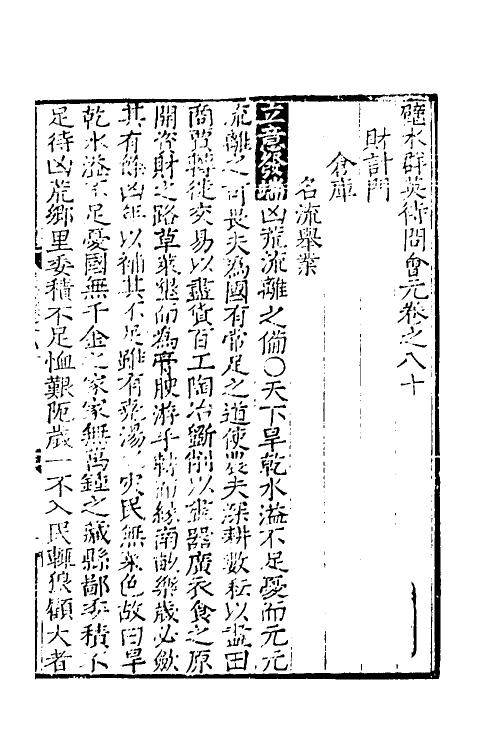 璧水群英待問會元卷之八十
財計門
倉庫
名流舉業
立意發端凶荒流離之備○天下旱乾水溢不足憂而元元
流離之可畏夫為國有常足之道使農夫深耕數耘以盡田
商賈轉徙交易以盡貨百工陶冶斵削以盡器廣衣食之原
開資財之路草萊墾而為膏腴游手轉而緣南畝樂歲必斂
其有餘凶年以補其不足雖有堯湯 災民無菜色故曰旱
乾水溢不足憂國無千金之家家無萬鍾之藏縣鄙委積不
足待凶荒鄉里委積不足恤艱阨歲一不入民轉狼顧大者